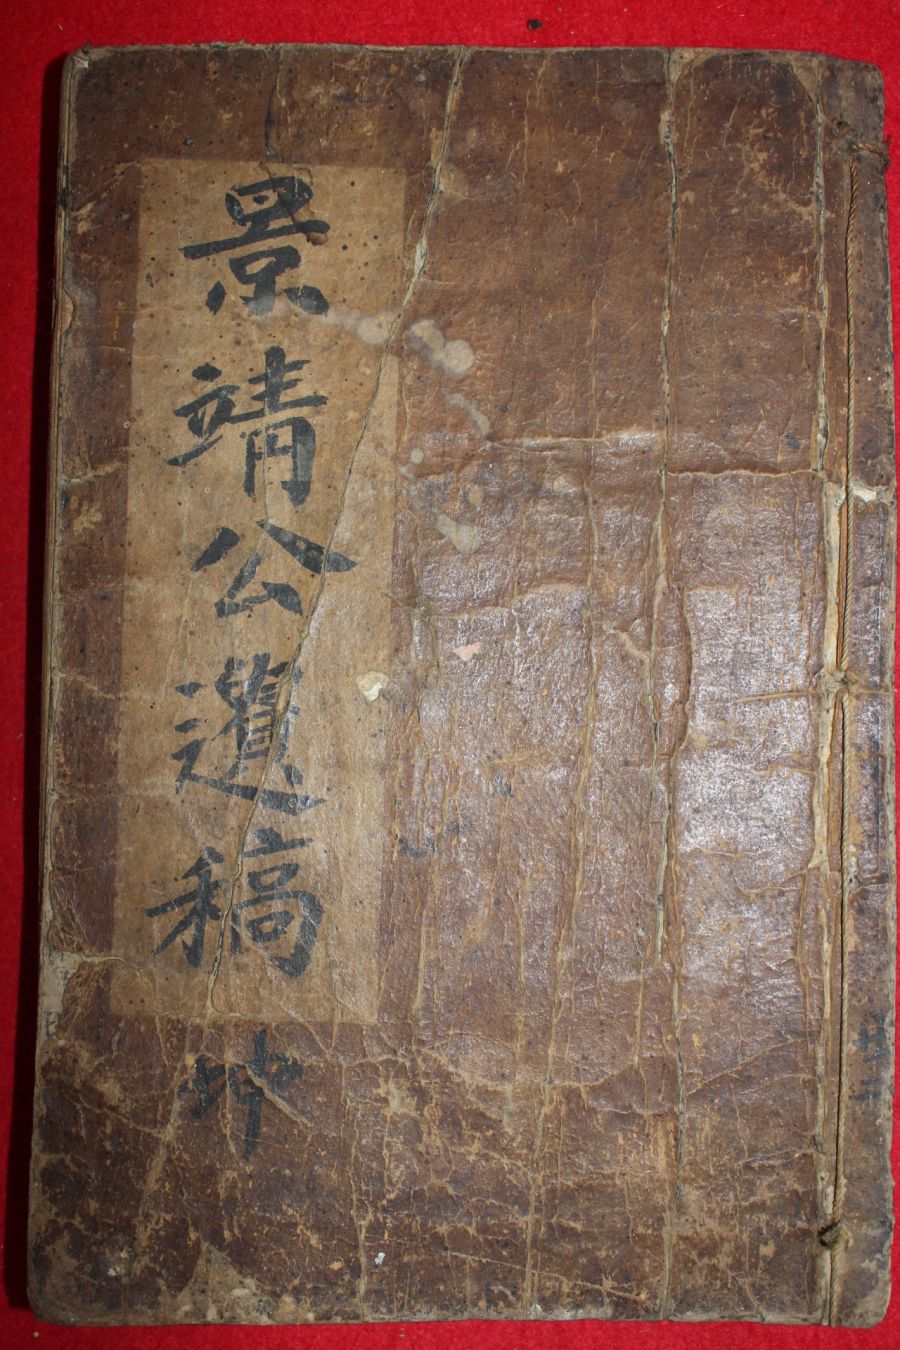 景靖公遺稿